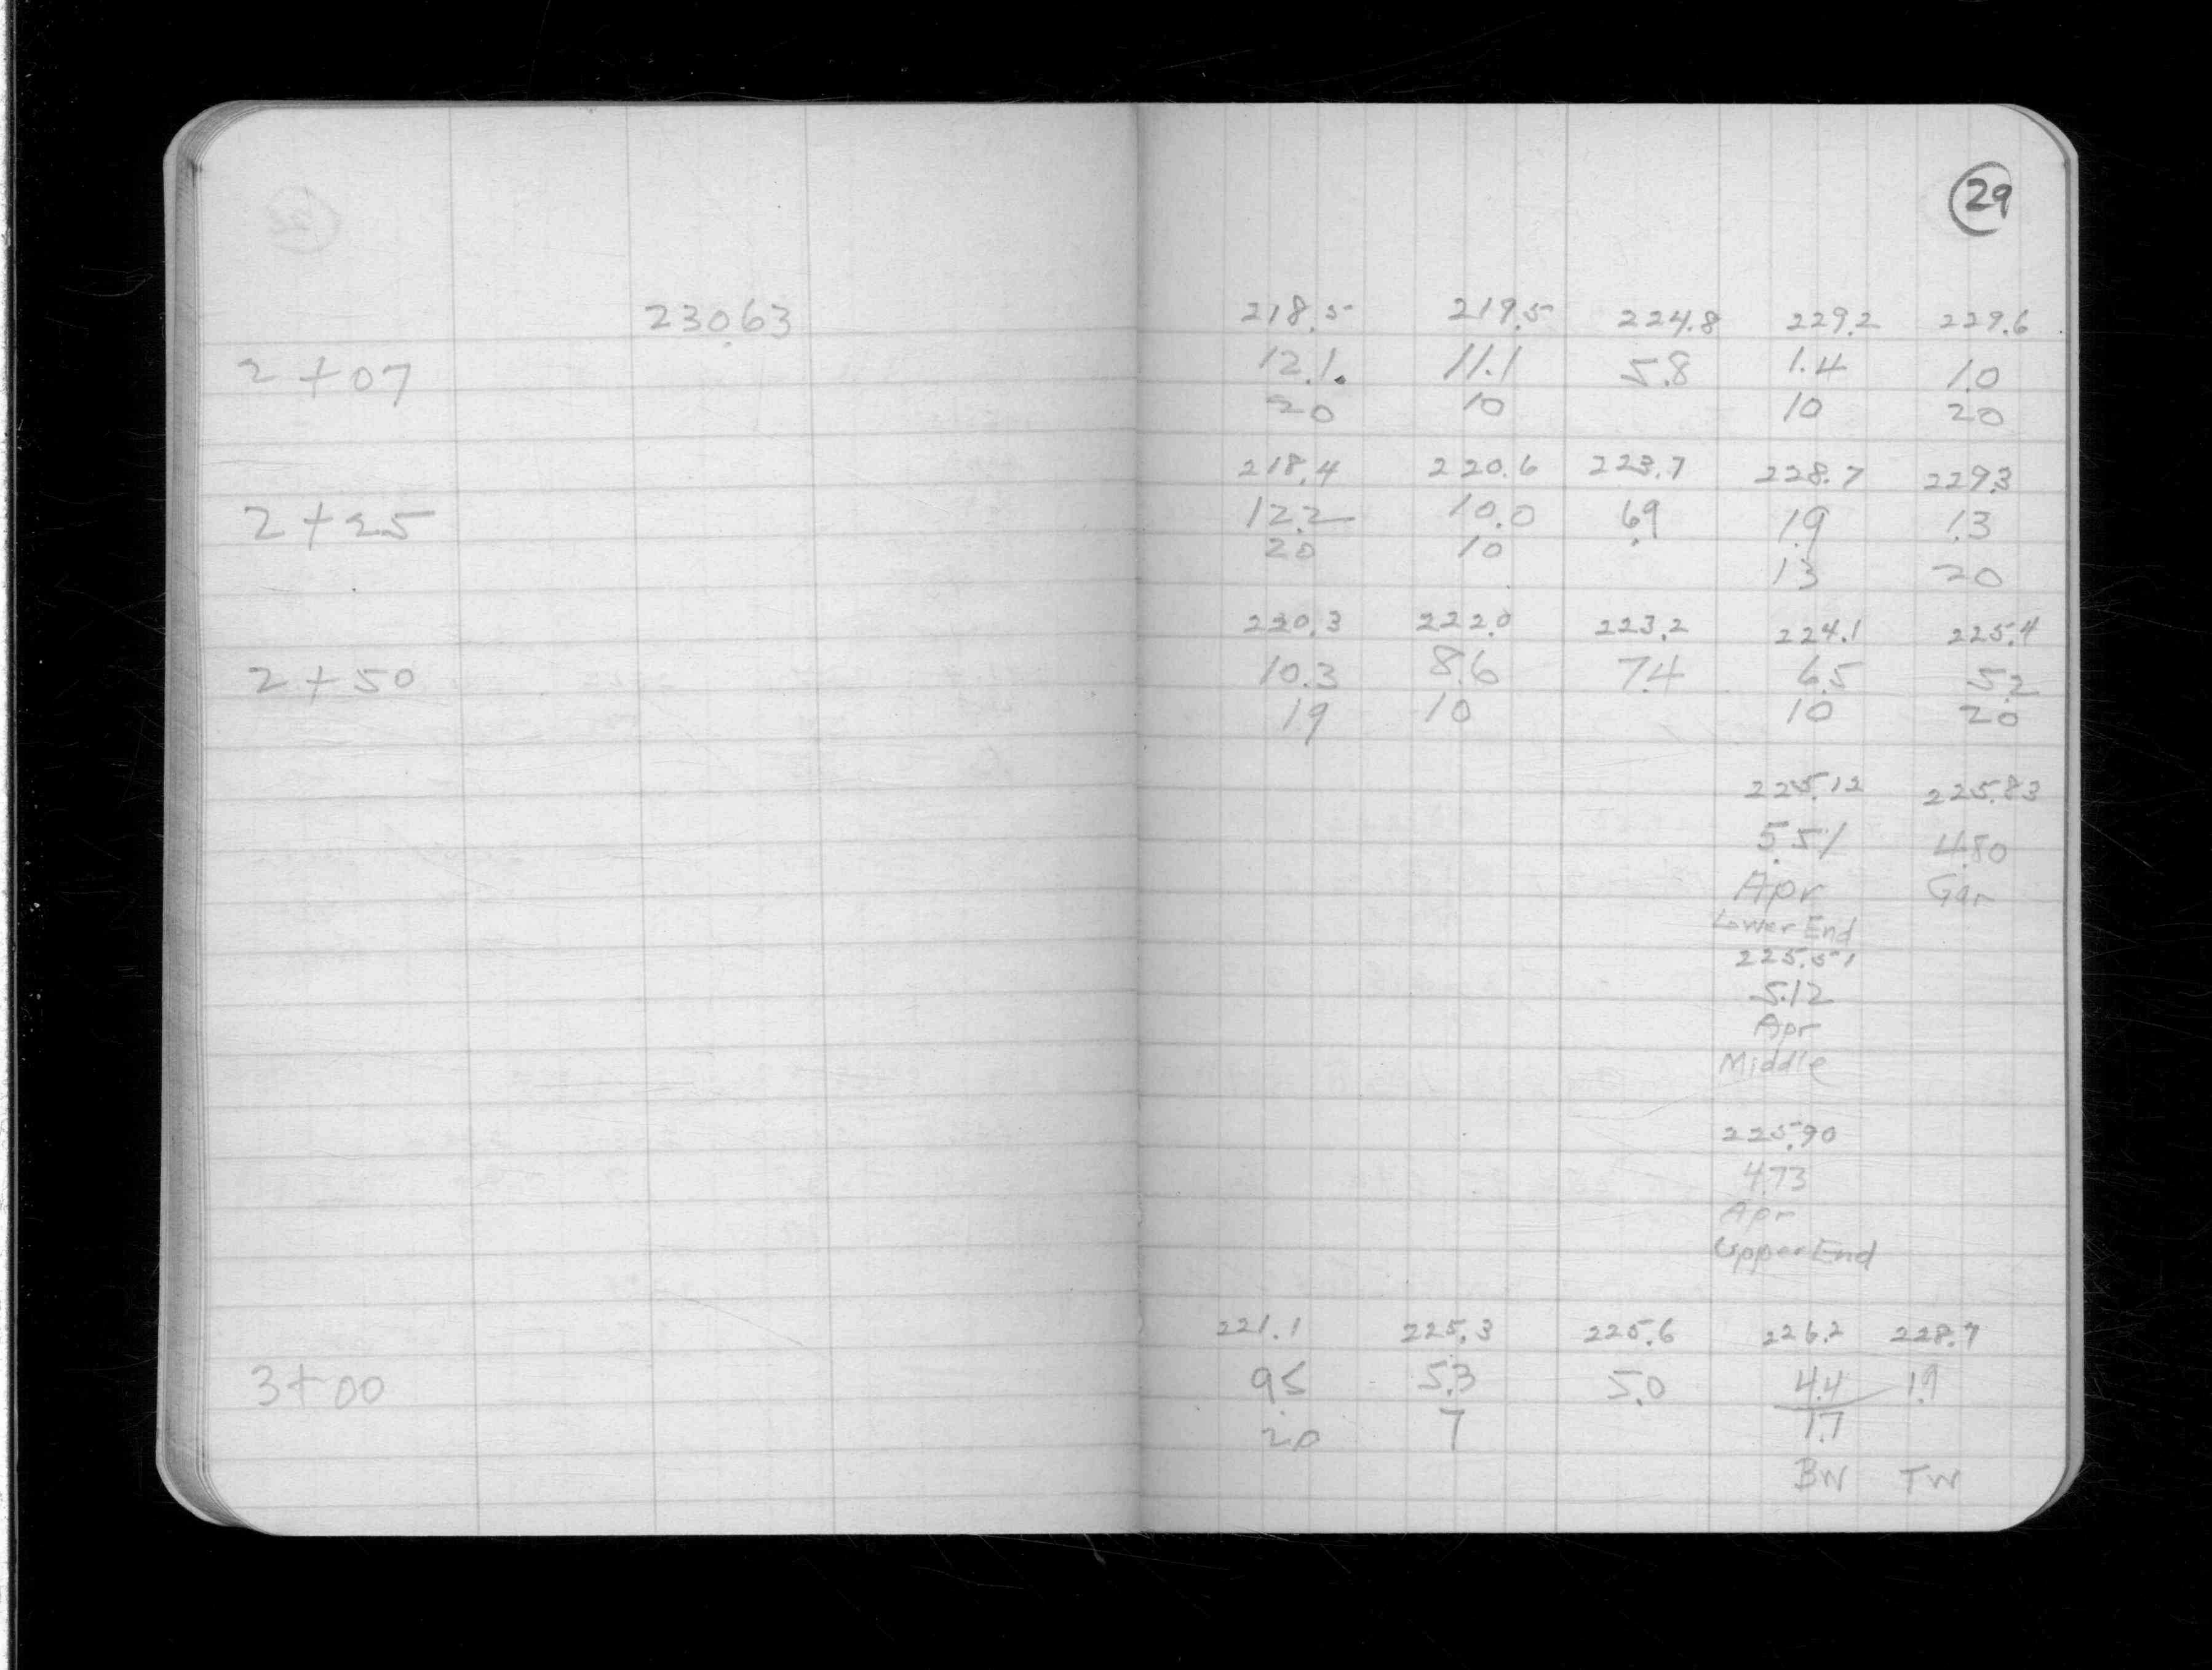 29
230.63 218.5 219.5 224.8 229.2 229.6
2+07 12.1 11.1 5.8 1.4 1.0
20 10 10 20
218.4 220.6 223.7 228.7 229.3
2+25 12.2 10.0 6.9 1.9 1.3
20 10
13 20
220.3 222.0 223.2 224.1 225.4
2+50 10.3 8.6 7.4 6.5 5.2
19 10 10 20
225.12 225.83
5.51 4.80
Apr Gar
Lower End
225.51
5.12
Apr
Middle
225.90
4.73
Apr
Upper End
221.1 225.3 225.6 226.2 228.7
3+00 9.5 5.3 5.0 4.4 1.9
20 7 17
BW TW